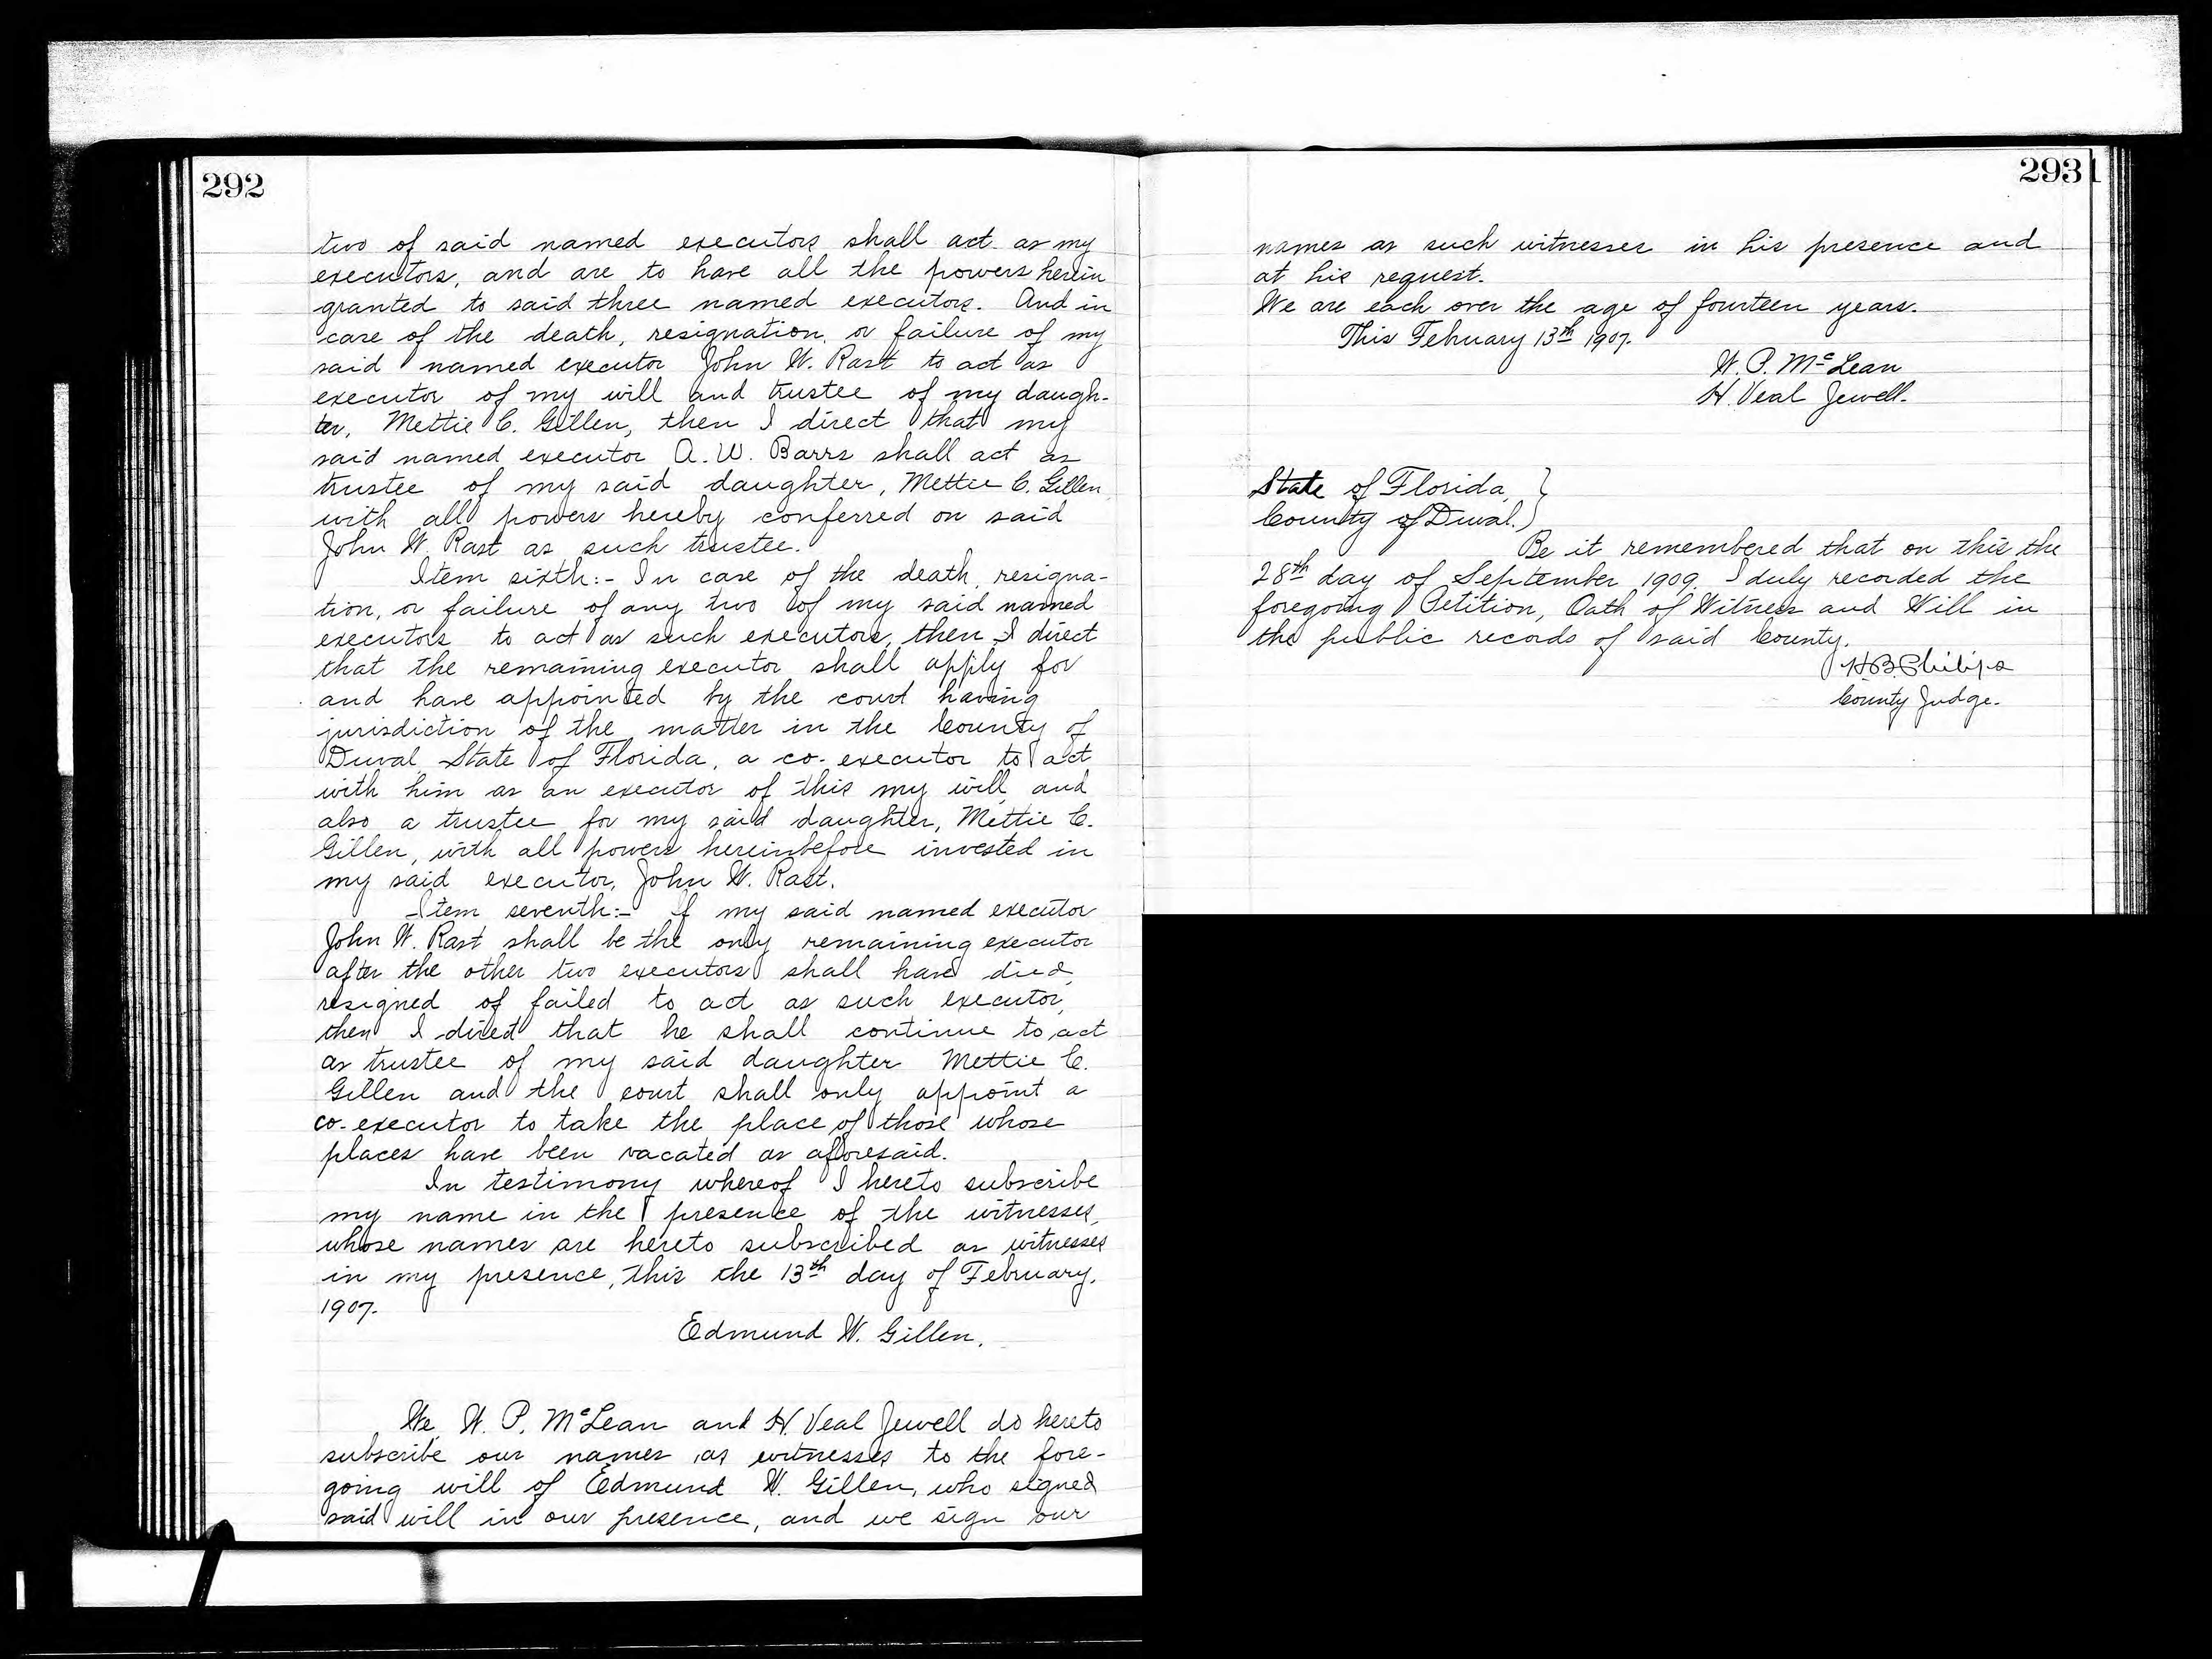 292
two of said named executors shall act as my
executors, and are to have all the powers herein
granted to said three named executors. And in
case of the death, resignation, or failure of my
said named executor John W. Rast to act as
executor of my will and trustee of my daugh-
ter, Mettie C. Gillen, then I direct that my
said named executor A. W. Barrs shall act as
trustee of my said daughter, Mettie C. Gillen,
with all powers hereby conferred on said
John W. Rast as such trustee.
Item sixth:- In case of the death, resigna-
tion, or failure of any two of my said named
executors to act as such executors, then I direct
that the remaining executor shall apply for
and have appointed by the court having
jurisdiction of the matter in the County of
Duval, State of Florida, a co-executor to act
with him as an executor of this my will, and
also a trustee for my said daughter, Mettie C.
Gillen, with all powers hereinbefore invested in
my said executor, John W. Rast.
Item seventh:- If my said named executor
John W. Rast shall be the only remaining executor
after the other two executors shall have died,
resigned of failed to act as such executor,
then I direct that he shall continue to act
as trustee of my said daughter Mettie C.
Gillen and the court shall only appoint a
co-executor to take the place of those whose
places have been vacated as aforesaid.
In testimony whereof I hereto subscribe
my name in the presence of the witnesses,
whose names are hereto subscribed as witnesses
in my presence, this the 13th day of February,
1907.
Edmund W. Gillen.
We, W. P. McLean and H. Veal Jewell do hereto
subscribe our names as witnesses to the fore-
going will of Edmund W. Gillen, who signed
said will in our presence, and we sign our
293
names as such witnesses in his presence and
at his request.
We are each over the age of fourteen years.
This February 13th 1907.
W. P. McLean
H. Veal Jewell.
State of Florida, }
County of Duval. }
Be it remembered that on this the
28th day of September 1909, I duly recorded the
foregoing Petition, Oath of Witness and Will in
the public records of said County.
H. B. Philips
County Judge.